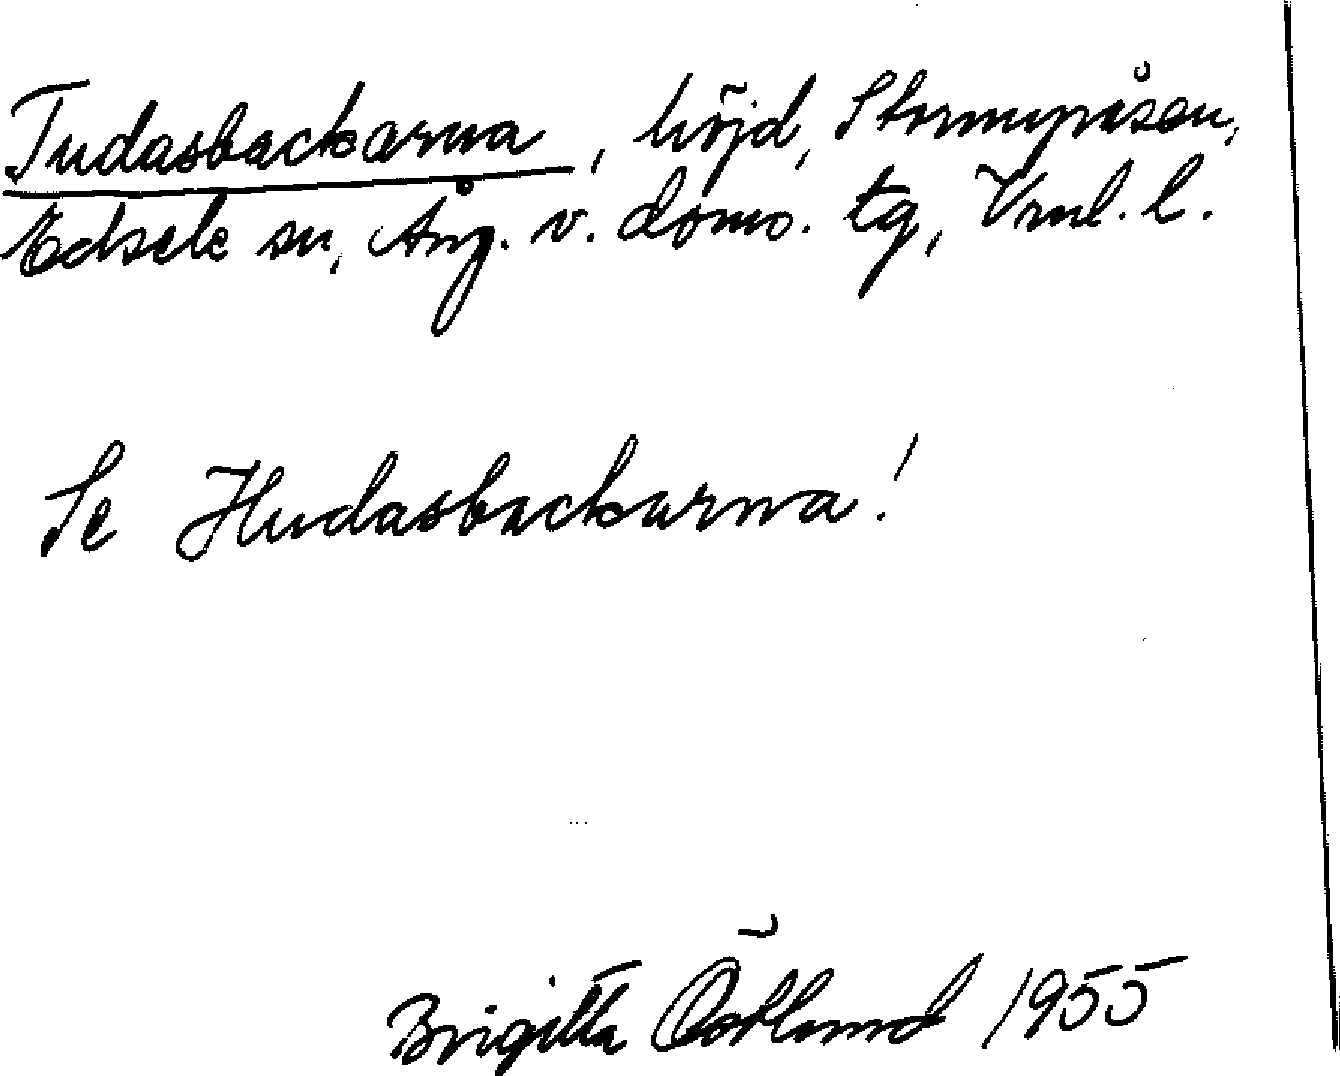 Tudasbackarna, höjd, Stormyråsen,
Edsele sn, Ång. v. doms. tg, Vrml. l.
Se Hudasbackarna!
Brigitta Östlund 1955